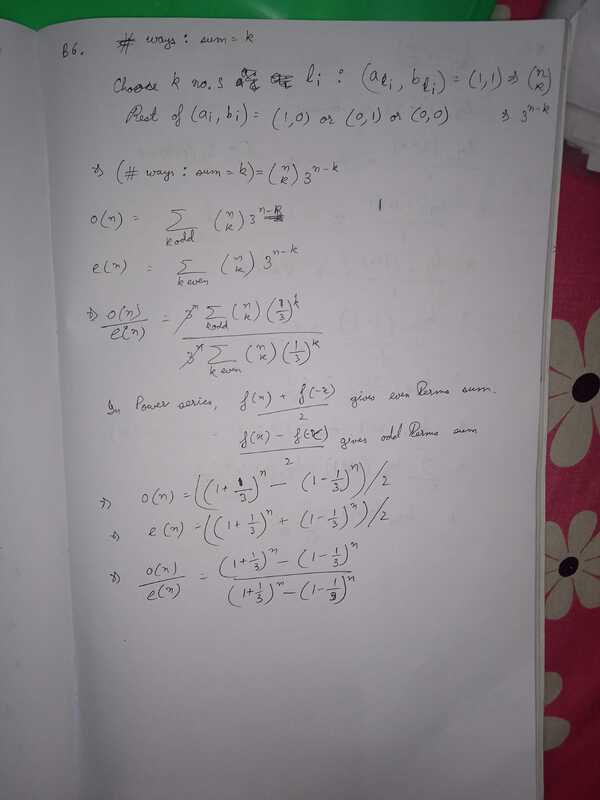 B6. # ways : sum = k
Choose k no.s l_i : (a_{l_i}, b_{l_i}) = (1,1) ⇒ (n k)
Rest of (a_i, b_i) = (1,0) or (0,1) or (0,0) ⇒ 3^{n-k}
⇒ (# ways : sum = k) = (n k) 3^{n-k}
o(n) = Σ_{k odd} (n k) 3^{n-k}
e(n) = Σ_{k even} (n k) 3^{n-k}
⇒ o(n)/e(n) = 3^n Σ_{k odd} (n k) (1/3)^k / 3^n Σ_{k even} (n k) (1/3)^k
In Power series, (f(x) + f(-x))/2 gives even terms sum.
(f(x) - f(-x))/2 gives odd terms sum
⇒ o(n) = ((1+1/3)^n - (1-1/3)^n)/2
⇒ e(n) = ((1+1/3)^n + (1-1/3)^n)/2
⇒ o(n)/e(n) = ((1+1/3)^n - (1-1/3)^n) / ((1+1/3)^n - (1-1/3)^n)